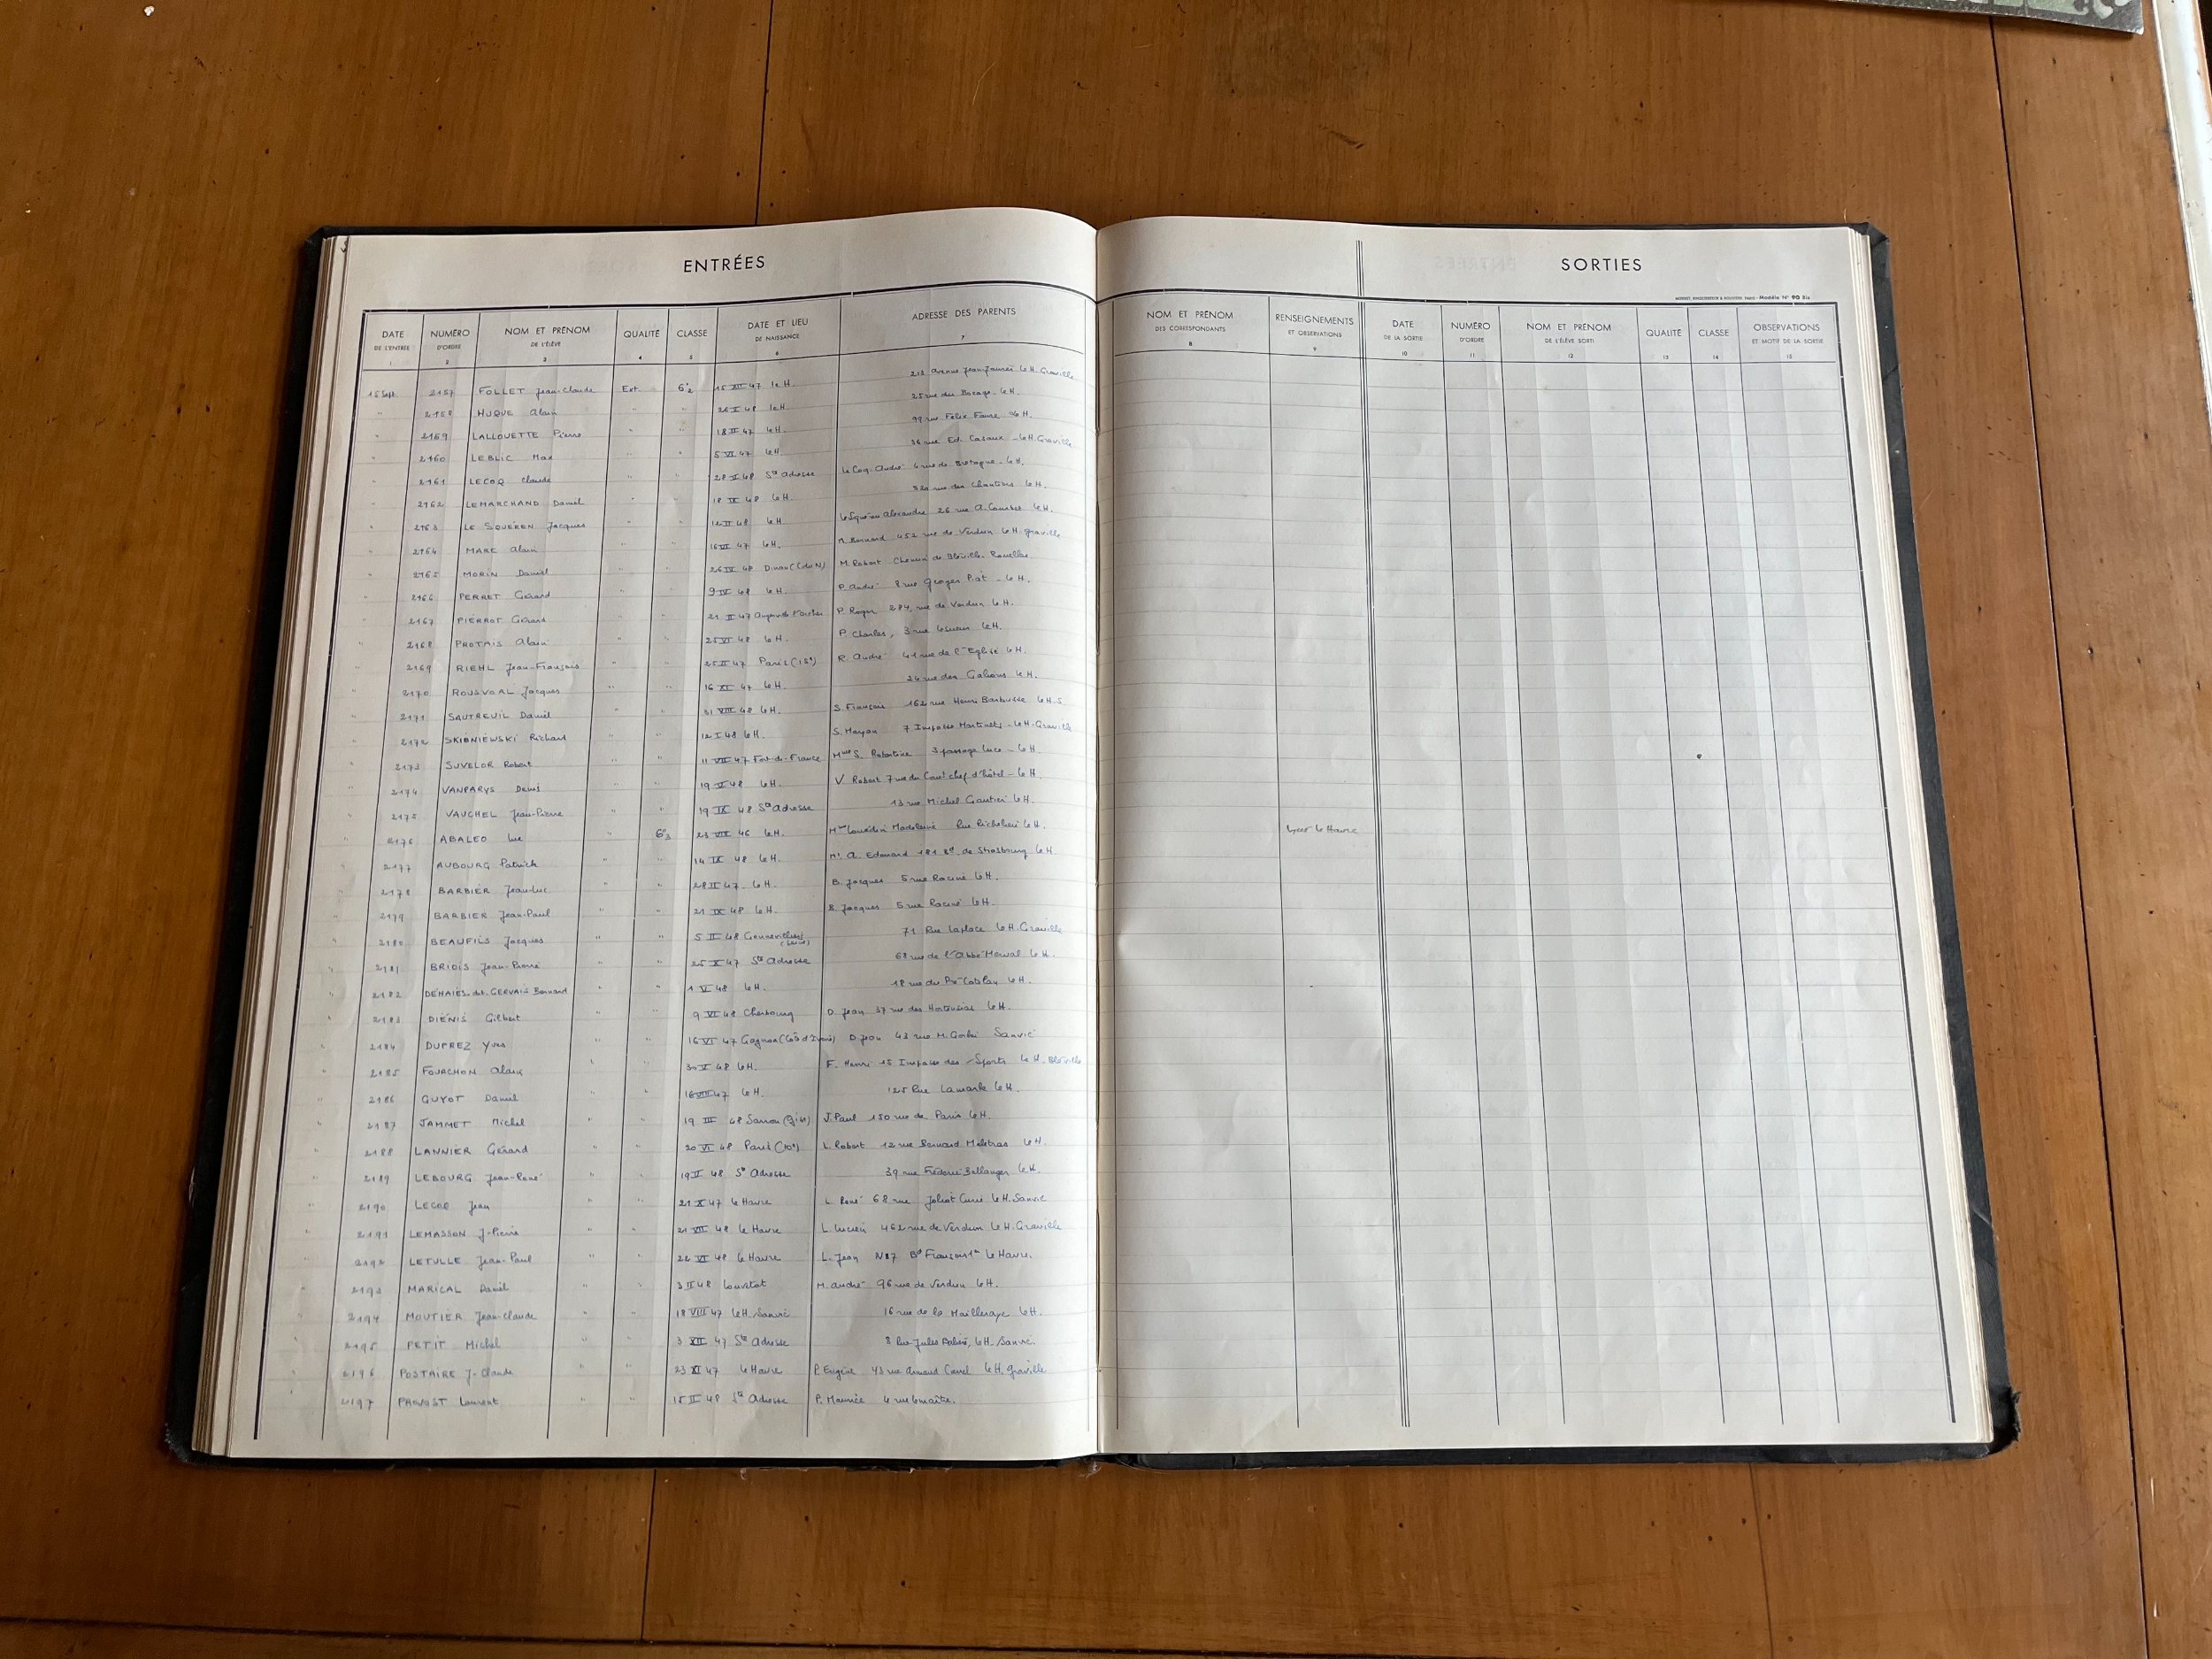 ENTRÉES
SORTIES
Modèle N° 90 Bis
DATE DE L'ENTRÉE 1 NUMÉRO D'ORDRE 2 NOM ET PRÉNOM DE L'ÉLÈVE 3 QUALITÉ 4 CLASSE 5 DATE ET LIEU DE NAISSANCE 6 ADRESSE DES PARENTS 7 NOM ET PRÉNOM DES CORRESPONDANTS 8 RENSEIGNEMENTS ET OBSERVATIONS 9 DATE DE LA SORTIE 10 NUMÉRO D'ORDRE 11 NOM ET PRÉNOM DE L'ÉLÈVE SORTI 12 QUALITÉ 13 CLASSE 14 OBSERVATIONS ET MOTIF DE LA SORTIE 15
15 Sept 2157 FOLLET Jean-Claude Ext. 6e2 15 XII 47 le H. 212 avenue Jean Jaurès le H. Graville
" 2158 HUQUE Alain " " le H. 25 rue du Bocage le H.
" 2159 LALLOUETTE Pierre " " 18 II 47 le H. 99 rue Félix Faure le H.
" 2160 LEBLIC Max " " 5 VI 47 le H. 36 rue Ed. Casaux - le H. Graville
" 2161 LECOQ Claude " " 28 I 48 Ste Adresse Le Coq André 4 rue de Bretagne - le H.
" 2162 LEMARCHAND Daniel " " 18 IX 48 le H. rue des Chantiers le H.
" 2163 LE SQUÉREN Jacques " " 12 II 48 le H. Alexandre 26 rue A. Combet le H.
" 2164 MARE Alain " " 16 VI 47 le H. M. Bernard 452 rue de Verdun le H. Graville
" 2165 MORIN Daniel " " 26 IV 48 Dinan (C. du N.) M. Robert Chemin de Bléville Rouelles
" 2166 PERRET Gérard " " 9 IV 48 le H. P. André 8 rue Georges Piat - le H.
" 2167 PIERROT Gérard " " 21 II 47 P. Roger 284, rue de Verdun le H.
" 2168 PROTAIS Alain " " 25 VI 48 le H. P. Charles, 3 rue le H.
" 2169 RIEHL Jean-François " " 25 II 47 Paris (15e) R. André 41 rue de l'Eglise le H.
" 2170 ROUSVOAL Jacques " " 16 XI 47 le H. 24 rue des Galions le H.
" 2171 SAUTREUIL Daniel " " 31 VIII 48 le H. S. François 162 rue Henri Barbusse le H. S.
" 2172 SKIBNIEWSKI Richard " " 12 I 48 le H. S. Maryan 7 Impasse Martinets - le H. Graville
" 2173 SUVELOR Robert " " 11 VII 47 Fort-de-France Mme S. Robertine 3 passage Luce - le H.
" 2174 VANPARYS Denis " " 19 I 48 le H. V. Robert 7 rue du Cant chef d'hôtel - le H.
" 2175 VAUCHEL Jean-Pierre " " 19 IX 48 Ste Adresse 13 rue Michel Gautier le H.
" 2176 ABALEO Luc " 6e3 23 VIII 46 le H. Madeleine Rue Richelieu le H. Lycée le Havre
" 2177 AUBOURG Patrick " " 14 IX 48 le H. Mr A. Edouard 181 Bd de Strasbourg le H.
" 2178 BARBIER Jean-Luc " " 28 II 47 le H. B. Jacques 5 rue Racine le H.
" 2179 BARBIER Jean-Paul " " 21 IX 48 le H. B. Jacques 5 rue Racine le H.
" 2180 BEAUFILS Jacques " " 5 II 48 Gennevilliers (Seine) 71 Rue Laplace le H. Graville
" 2181 BRIOIS Jean-Pierre " " 25 X 47 Ste Adresse 68 rue de l'Abbé Herval le H.
" 2182 DEHAIES dit GERVAIS Bernard " " 1 V 48 le H. 18 rue du Pré Cotelay le H.
" 2183 DIÉNIS Gilbert " " 9 VI 48 Cherbourg D. Jean 37 rue des Hortensias le H.
" 2184 DUPREZ Yves " " 16 VI 47 Gagnoa (Côte d'Ivoire) D. Jean 43 rue M. Gorki Sanvic
" 2185 FOURCHON Alain " " 30 V 48 le H. F. Henri 15 Impasse des Sports le H. Bléville
" 2186 GUYOT Daniel " " 16 VIII 47 le H. 125 Rue Lamark le H.
" 2187 JAMMET Michel " " 19 III 48 J. Paul 150 rue de Paris le H.
" 2188 LANNIER Gérard " " 20 VI 48 Paris (10e) L. Robert 12 rue Bernard Mététras le H.
" 2189 LEBOURG Jean-René " " 19 II 48 Ste Adresse 39 rue Frédéric Bellanger le H.
" 2190 LECOQ Jean " " 21 X 47 le Havre L. René 68 rue Joliot Curie le H. Sanvic
" 2191 LEMASSON J-Pierre " " 21 VII 48 le Havre L. Lucien 462 rue de Verdun le H. Graville
" 2192 LETULLE Jean-Paul " " 22 VI 48 le Havre L. Jean N87 Bd François 1er le Havre.
" 2193 MARICAL Daniel " " 3 II 48 Louvetot M. André 96 rue de Verdun le H.
" 2194 MOUTIER Jean-Claude " " 18 VIII 47 le H. Sanvic 16 rue de la Mailleraye le H.
" 2195 PETIT Michel " " 3 XII 47 Ste Adresse 8 Rue Jules le H. Sanvic.
" 2196 POSTAIRE J-Claude " " 23 XI 47 le Havre P. Eugène 43 rue Armand Carrel le H. Graville
" 2197 PREVOST Laurent " " 15 II 48 Ste Adresse P. Maurice 4 rue Lemaître.